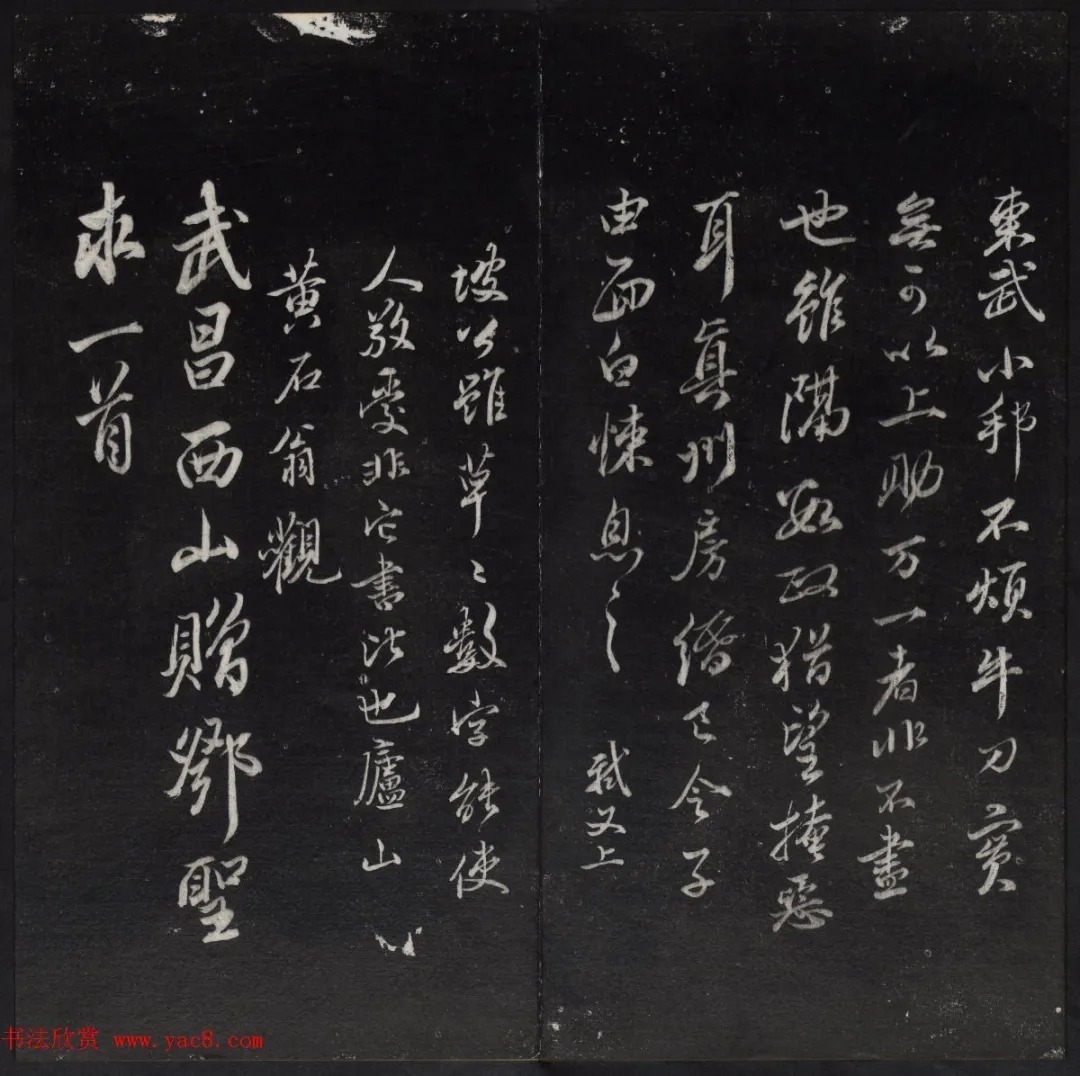 東武小邦不煩牛刀實
無可以上助万一者非不盡
也雖隔數政猶望掩惡
耳真州房緡已令子
由面白悚息之 軾又上
坡公雖草〻數字能使
人敬愛非它書比也廬山
黄石翁觀
武昌西山贈鄧聖
求一首
书法欣赏 www.yac8.com